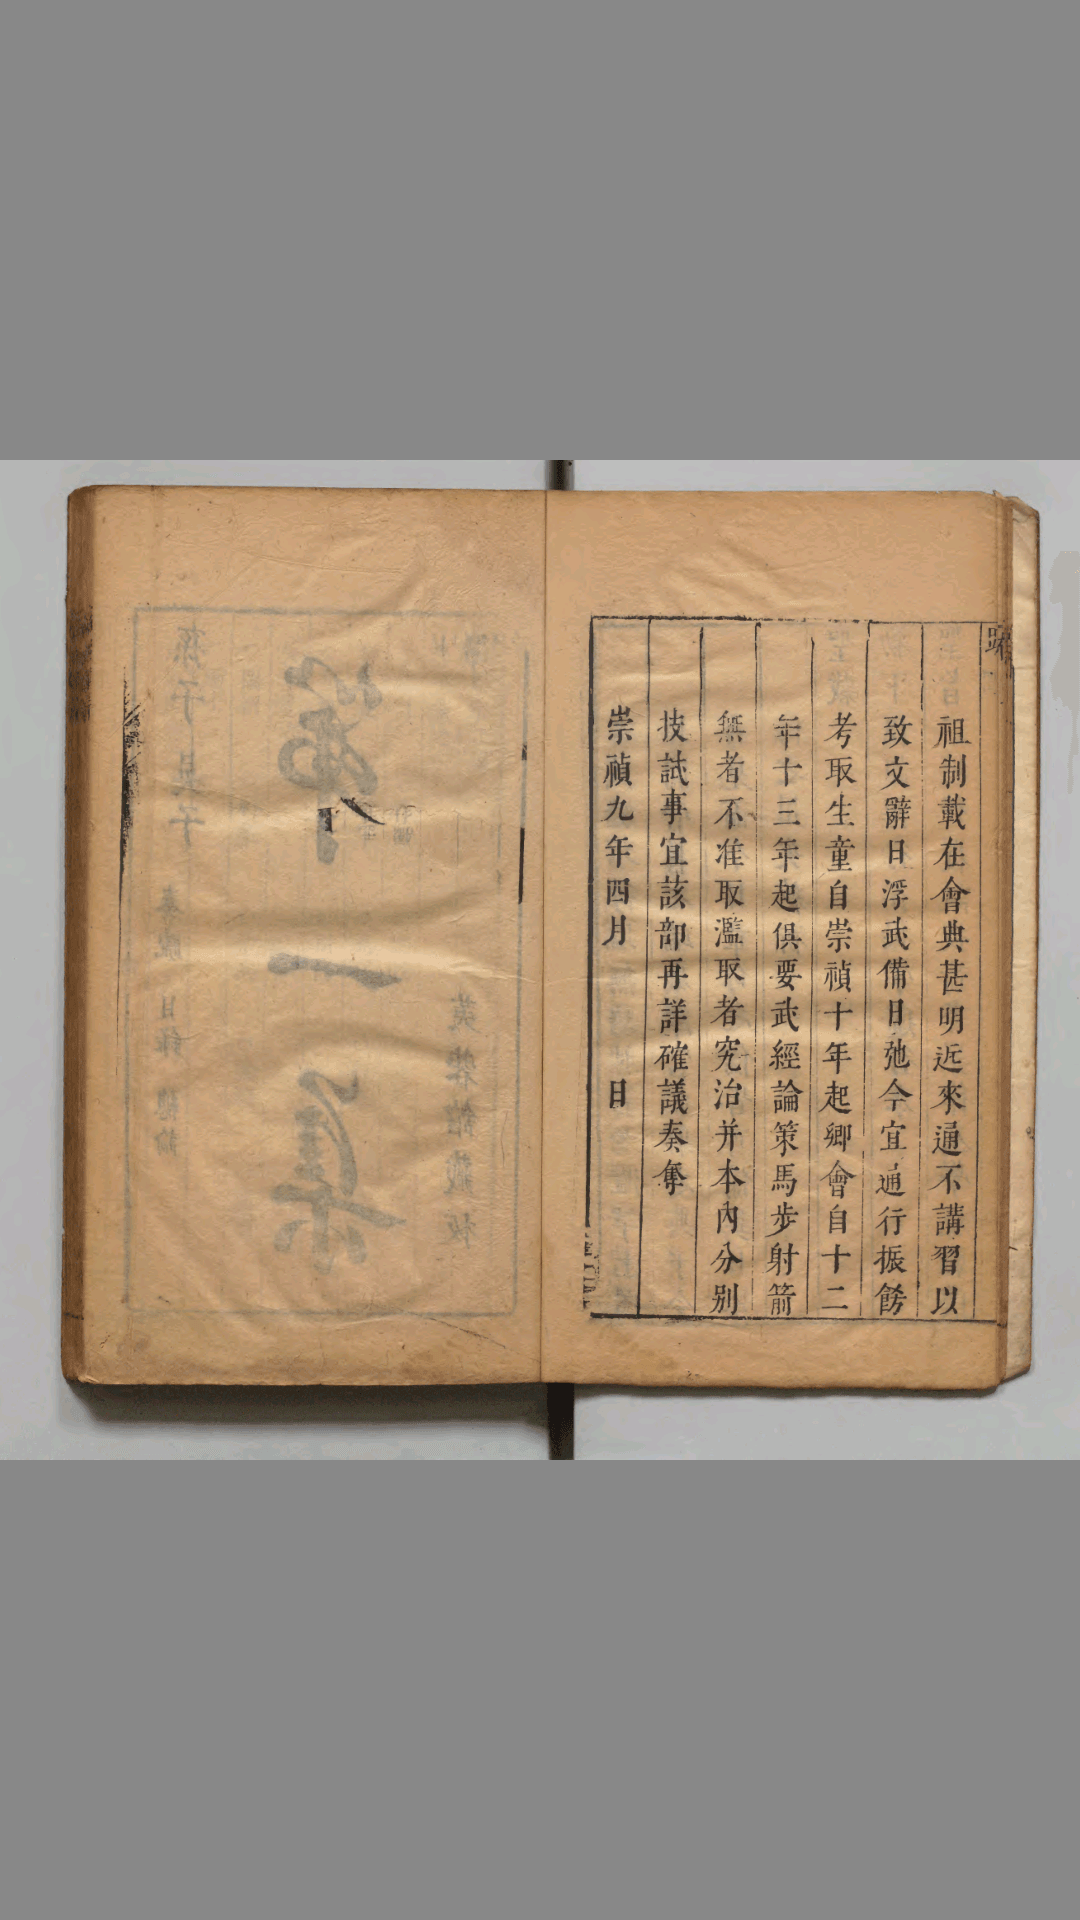 祖制載在會典甚明近來通不講習以
致文辭日浮武備日弛今宜通行振飭
考取生童自崇禎十年起鄉會自十二
年十三年起俱要武經論策馬步射箭
無者不准取濫取者究治并本內分別
技試事宜該部再詳確議奏奪
崇禎九年四月 日
第一集